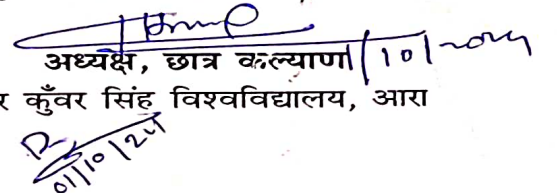 अध्यक्ष, छात्र कल्याण
र कुँवर सिंह विश्वविद्यालय, आरा
01/10/24